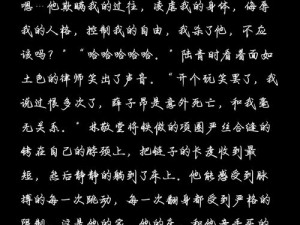 嗯…他欺瞒我的过往,凌虐我的身体,侮辱
我的人格,控制我的自由,我杀了他,不应
该吗?”“哈哈哈哈哈。”陆青时看着面如
土色的律师笑出了声音。“开个玩笑罢了,我
说过很多次了,薛子昂是意外死亡,和我毫
无关系。”林敬堂将铁做的项圈严丝合缝的
铐在自己的脖颈上,把链子的长度收到最
短,然后静静的躺到了床上。他能感受到脉
搏的每一次跳动,每一次翻身都受到严格的